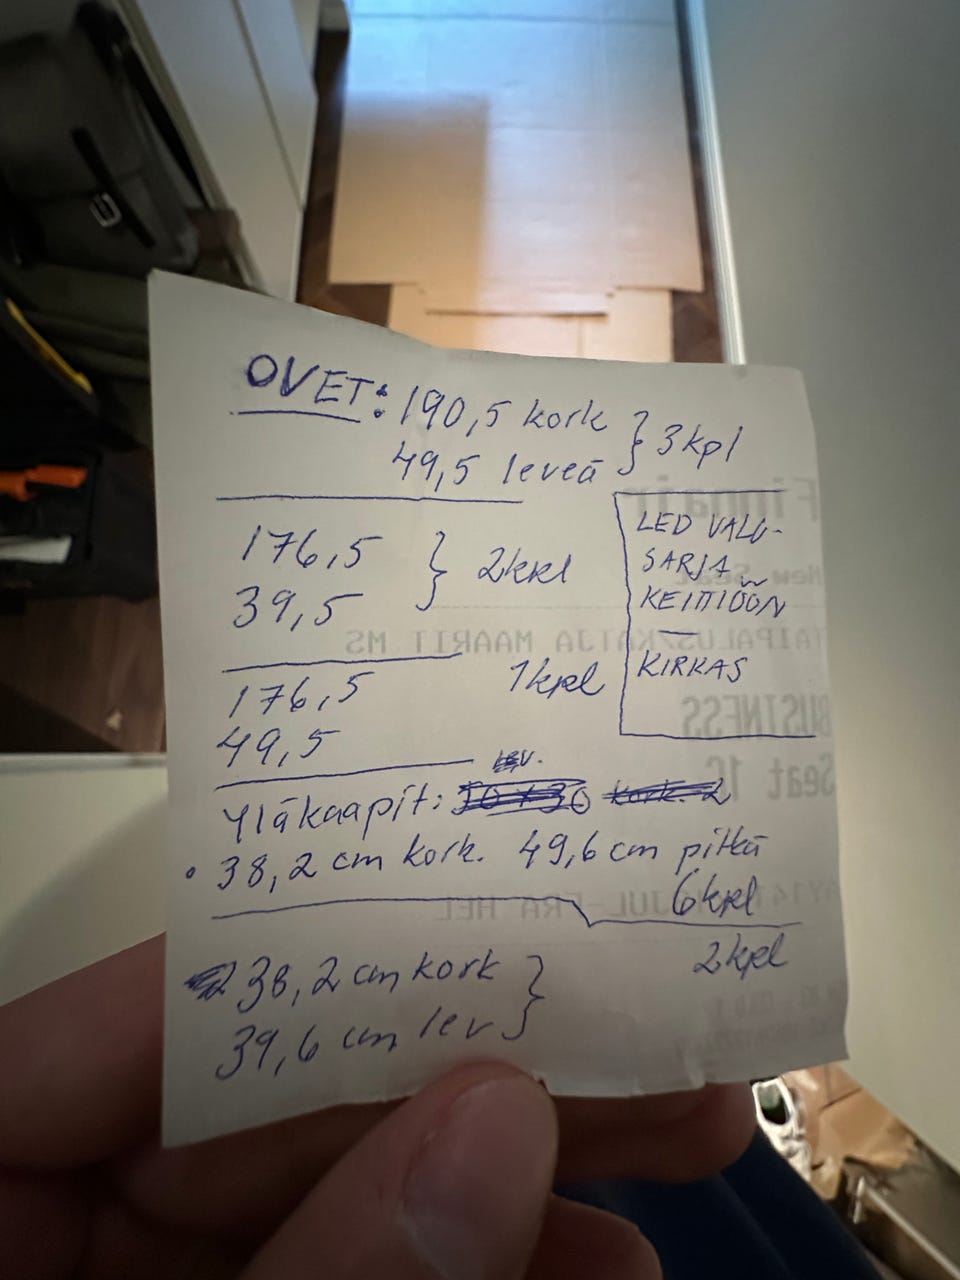 OVET: 190,5 kork } 3kpl
49,5 leveä
176,5 } 2kpl
39,5
176,5 1kpl
49,5
LED VALO-
SARJA
KEITTIÖÖN
—
KIRKAS
LEV.
Yläkaapit:
• 38,2 cm kork. 49,6 cm pitkä
6kpl
38,2 cm kork } 2kpl
39,6 cm lev
Finnair
New Seat
TAIPALUS/KATJA MAARIT MS
BUSINESS
Seat 1C
JUL FRA HEL